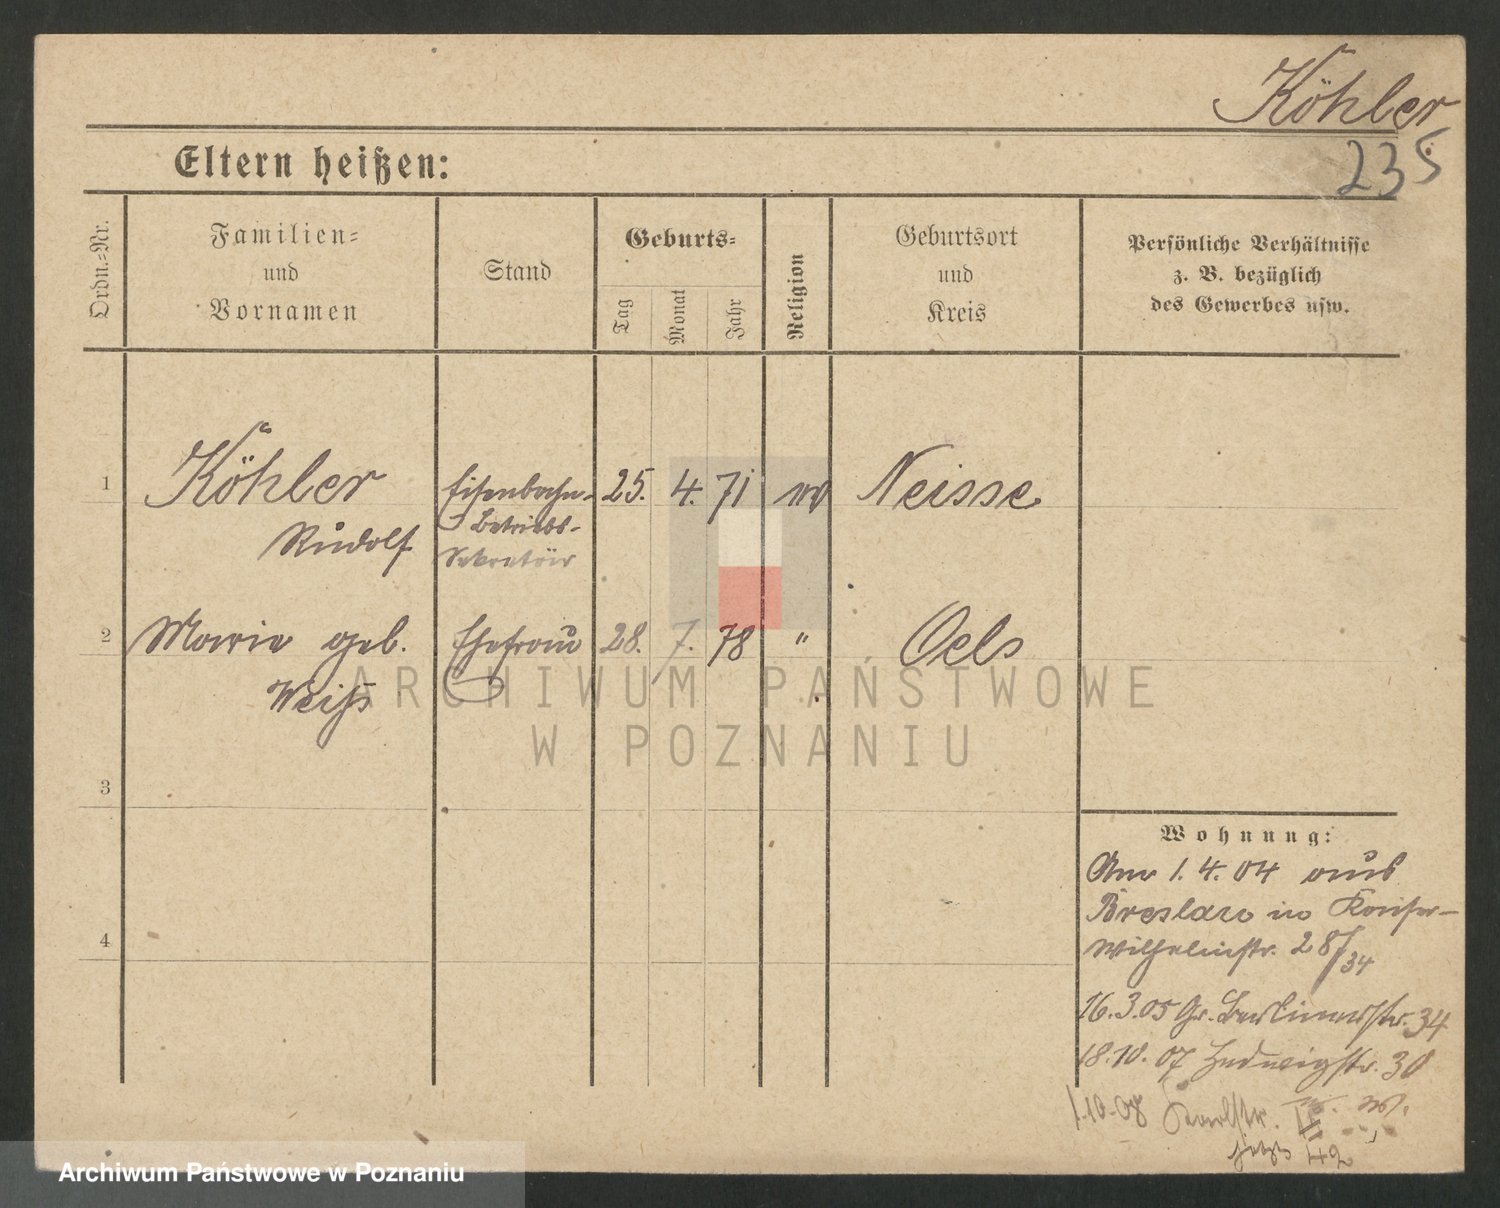 Köhler
235
Eltern heißen:
Ordn.-Nr.
Familien-
und
Vornamen
Stand
Geburts-
Tag
Monat
Jahr
Religion
Geburtsort
und
Kreis
Persönliche Verhältnisse
z. B. bezüglich
des Gewerbes usw.
1
Köhler
Rudolf
Eisenbahn-
Betriebs-
Sekretär
25. 4. 71
Neisse
2
Marie geb.
Weiß
Ehefrau
28. 7. 78
"
Oels
3
4
Wohnung:
Am 1. 4. 04 aus
Breslau in Kaiser-
Wilhelmstr. 28/34
16.3.05 Gr. Berlinerstr. 34
18.10.07 Hedwigstr. 30
1.10.08 Karlstr.
jetzt 42
ARCHIWUM PAŃSTWOWE
W POZNANIU
Archiwum Państwowe w Poznaniu